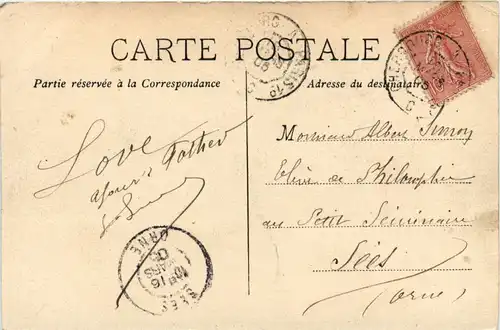 CARTE POSTALE
Partie réservée à la Correspondance
Adresse du destinataire
Love
your's Father
Monsieur Albert Simon
Elève de Philosophie
au Petit Séminaire
Séès
(Orne)
CHERBOURG
ORNE
16
MARS